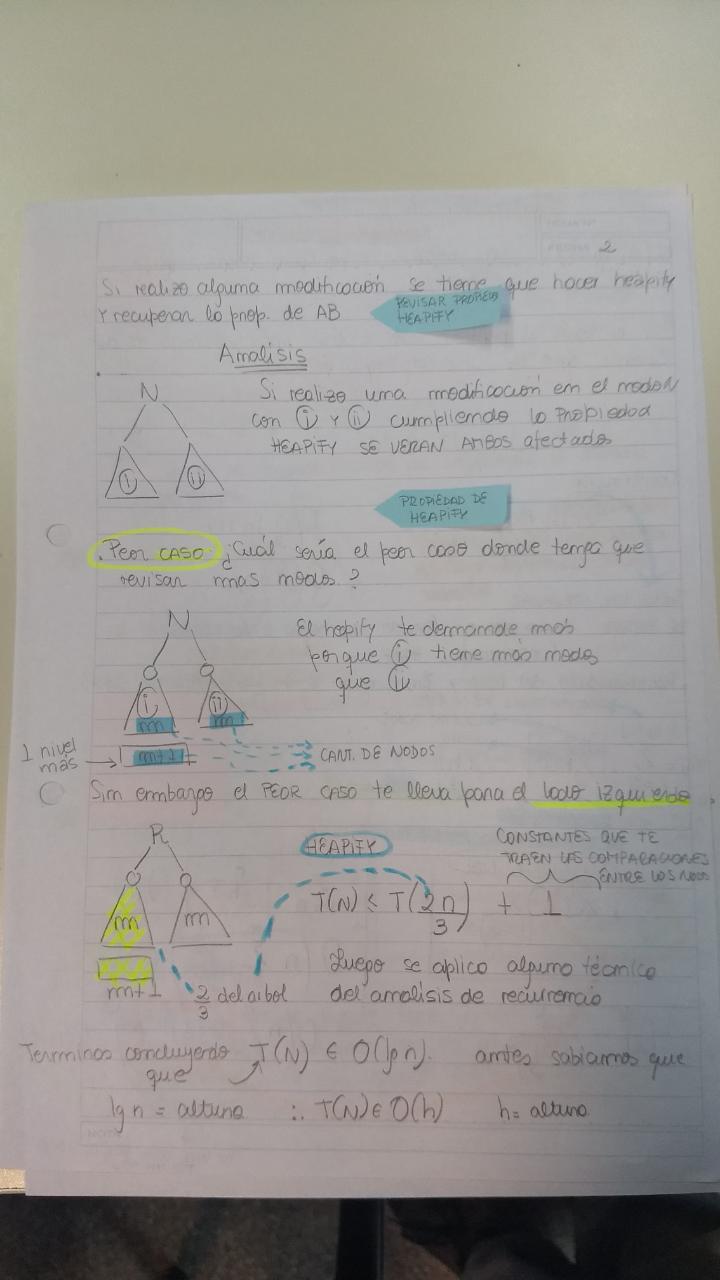 2
Si realizo alguna modificación se tiene que hacer heapify
Y recuperar la prop. de AB
REVISAR PROPIEDAD
HEAPIFY
Analisis
N
i
ii
Si realizo una modificación en el nodo N
con i y ii cumpliendo la propiedad
HEAPIFY SE VERAN AMBOS afectados
PROPIEDAD DE
HEAPIFY
Peor CASO: ¿Cuál sería el peor caso donde tenga que
revisar mas nodos?
N
i
ii
m
m
1 nivel
más
m+1
El heapify te demanda más
porque i tiene más nodos
que ii
CANT. DE NODOS
Sin embargo el PEOR CASO te lleva para el lado izquierdo.
R
m
m
m+1
2/3 del arbol
HEAPIFY
CONSTANTES QUE TE
TRAEN LAS COMPARACIONES
ENTRE LOS NODOS
T(N) ≤ T(2n/3) + 1
Luego se aplica alguna técnica
del analisis de recurrencia
Terminos concluyendo T(N) ∈ O(lg n). antes sabiamos que
que
lg n = altura ∴ T(N) ∈ O(h) h = altura